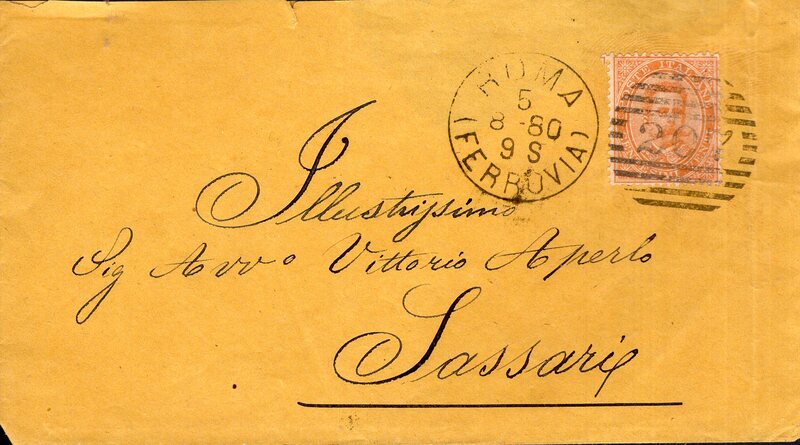 ROMA
5
8 - 80
9 S
(FERROVIA)
Illustrissimo
Sig Avvo Vittorio Aperlo
Sassari